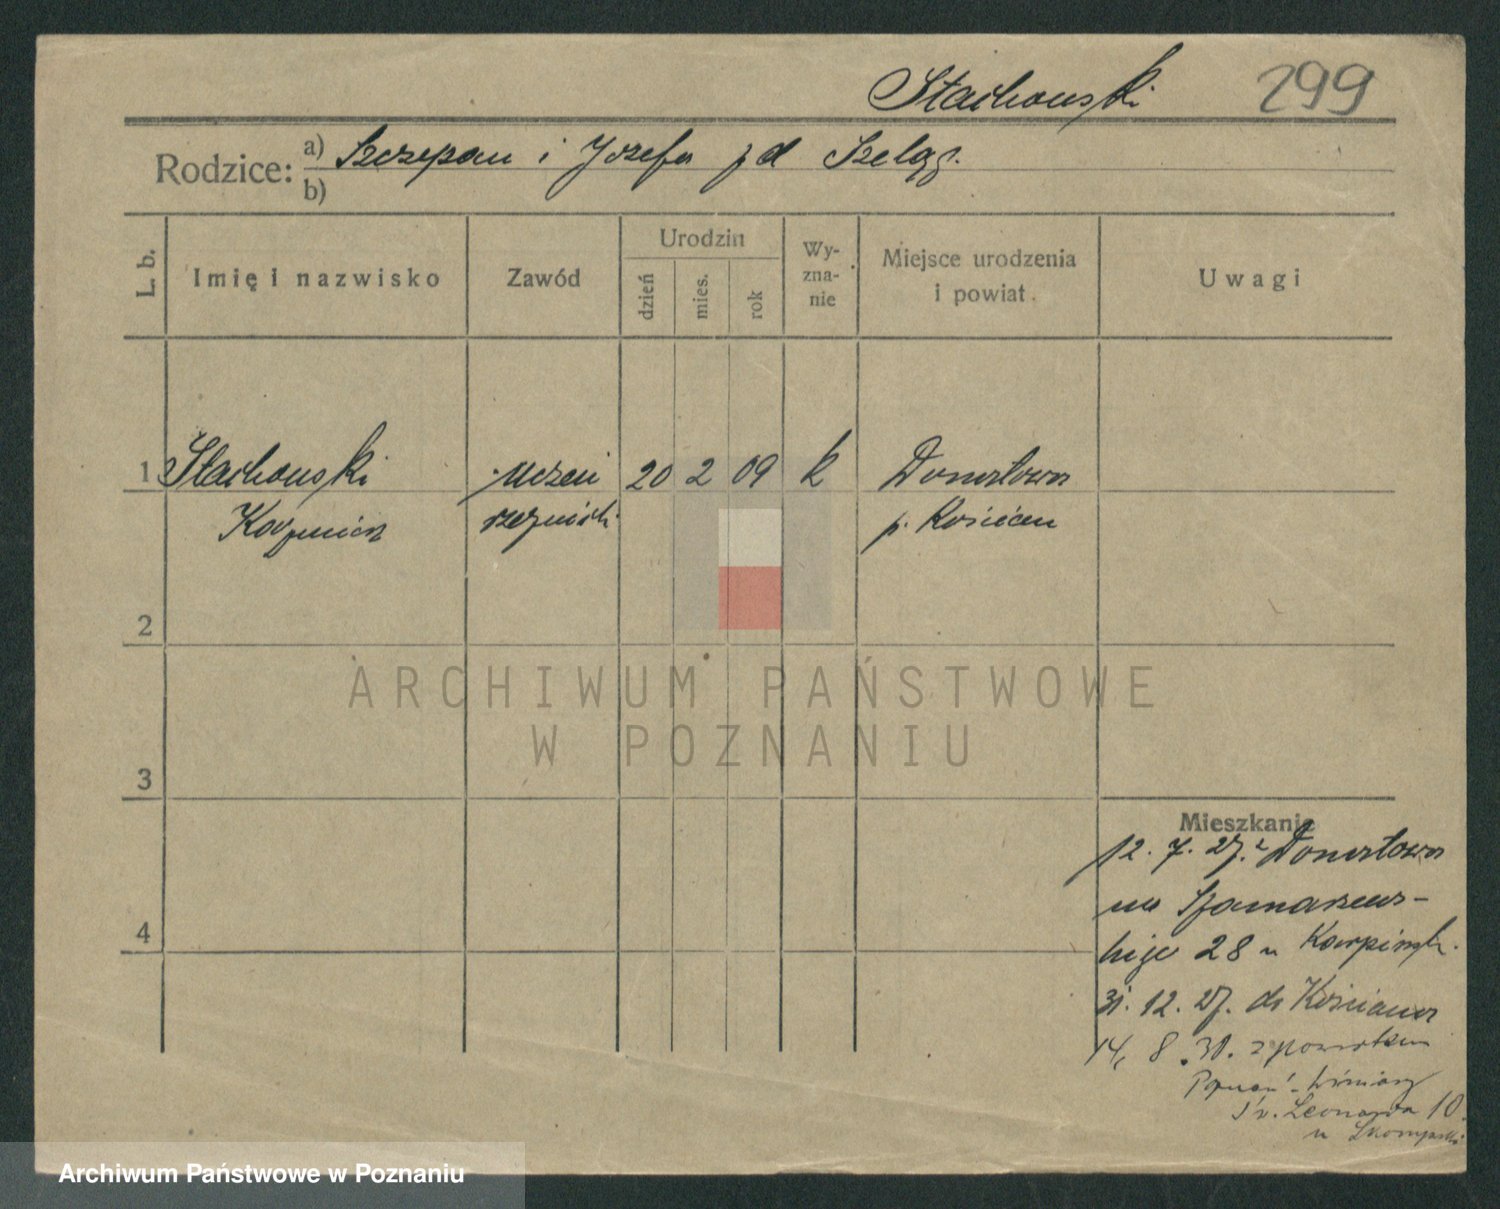 Stachowski 299
Rodzice: a) Szczepan i Józefa zd Szeląg.
b)
L. b.
Imię i nazwisko
Zawód
Urodzin
dzień
mies.
rok
Wy-
zna-
nie
Miejsce urodzenia
i powiat.
Uwagi
1 Stachowski uczeń 20 2 09 k Donatowo
Kazimierz rzeźnicki p. Kościan
2
ARCHIWUM PAŃSTWOWE
W POZNANIU
3
Mieszkanie
12. 7. 27. z Donatowa
na Szamarzews-
4
kiego 28 u
31. 12. 27. do Kościana
14, 8. 30. z powrotem
Poznań - Winiary
Św. Leonarda 10.
u
Archiwum Państwowe w Poznaniu